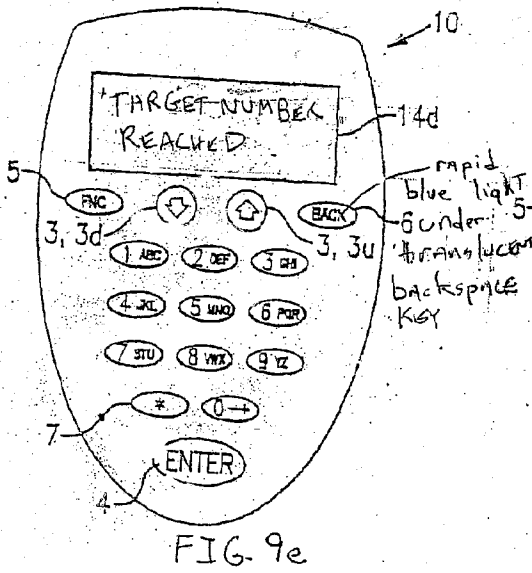 10
TARGET NUMBER
REACHED
14d
5
FNC
BACK
rapid
blue light
6 under
translucent
backspace
KEY
5
3, 3d
3, 3u
1 ABC 2 DEF 3 GHI
4 JKL 5 MNO 6 PQR
7 STU 8 VWX 9 YZ
7
* 0
4
ENTER
FIG. 9e